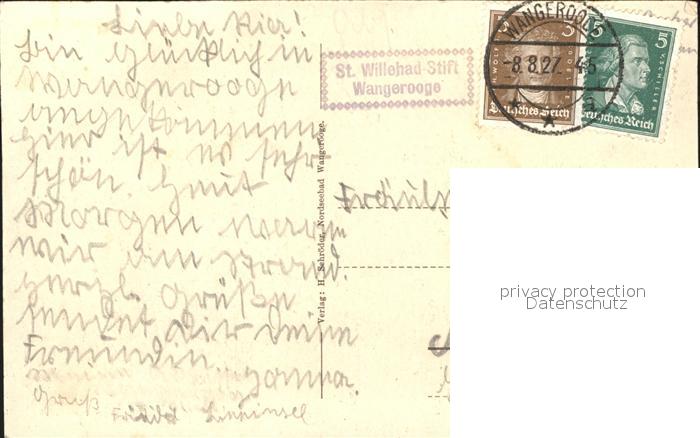 Liebe Ria!
bin glücklich in
Wangerooge
angekommen
hier ist es sehr
schön. Heut
Morgen waren
wir am Strand.
herzl. Grüße
sendet Dir deine
Freundin
Gruß
St. Willehad-Stift
Wangerooge
WANGEROOGE
-8.8.27. 4-5
3
Deutsches Reich
5
5
SCHILLER
Deutsches Reich
Verlag: H. Schröder, Nordseebad Wangerooge.
Fräul
privacy protection
Datenschutz